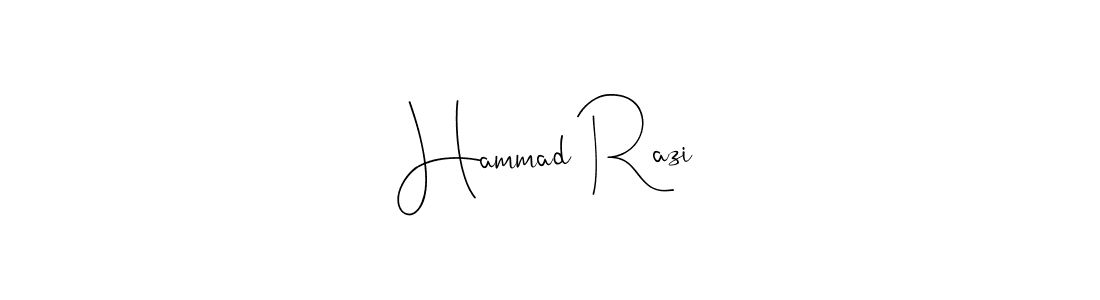 Hammad Razi